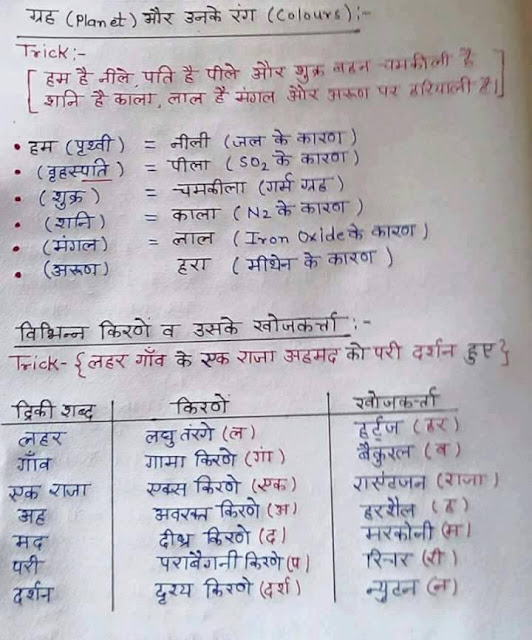 ग्रह (Planet) और उनके रंग (Colours):-
Trick:-
[ हम है नीले, पति है पीले और शुक्र बदन चमकीली है
शनि है काला, लाल है मंगल और अरूण पर हरियाली है।]
• हम (पृथ्वी) = नीली (जल के कारण)
• (वृहस्पति) = पीला (SO2 के कारण)
• (शुक्र) = चमकीला (गर्म ग्रह)
• (शनि) = काला (N2 के कारण)
• (मंगल) = लाल (Iron Oxide के कारण)
• (अरूण) हरा (मीथेन के कारण)
विभिन्न किरणें व उसके खोजकर्त्ता :-
Trick- {लहर गाँव के एक राजा अहमद को परी दर्शन हुए}
ट्रिकी शब्द किरणें खोजकर्त्ता
लहर लघु तरंगे (ल) हर्ट्ज (हर)
गाँव गामा किरणे (गां) बैकुरल (व)
एक राजा एक्स किरणे (एक) राएंटजन (राजा)
अह अवरक्त किरणे (अ) हरशैल (ह)
मद दीर्घ किरणे (द) मरकोनी (म)
परी पराबैगनी किरणे (प) रिचर (री)
दर्शन दृश्य किरणे (दर्श) न्युटन (न)